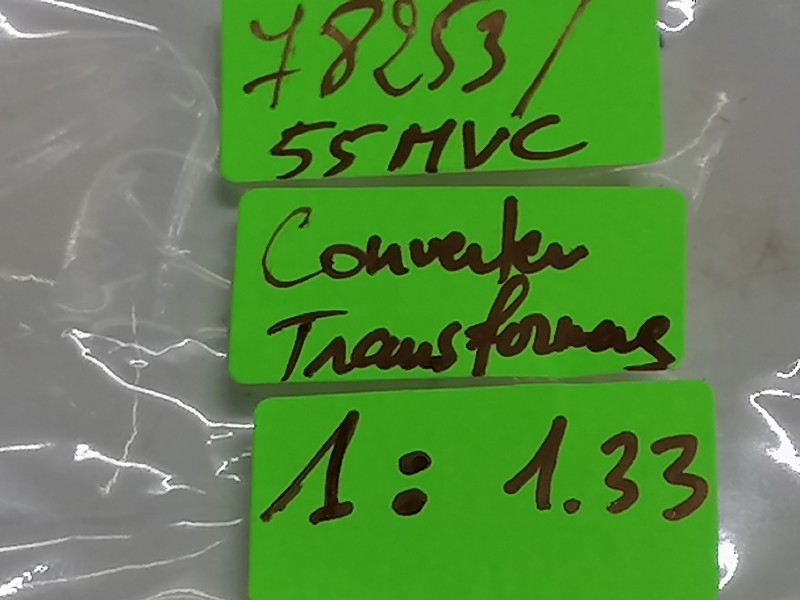 78253/
55MVC
Converter
Transformers
1:1.33